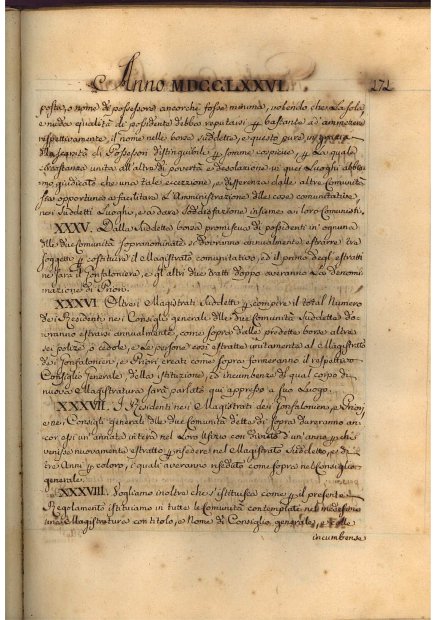 Anno MDCCLXXVI. 272
posta, o nome de possessore ancorchè fosse minima, volendo che la sola,
e nuda qualità di possidente debba reputarsi p bastante ad ammettere
respettivamente il nome nelle borse suddette, e questo pure in grazia
di scarsità di Possessori distinguibili p somme copiose, p la quale
circostanza unita all'altra di povertà e desolazione in quei Luoghi abbia-
mo giudicato che una tale eccezione, e differenza dalle altre Comunità
sia opportuna a facilitare l'Amministrazione delle cose comunitative,
nei suddetti Luoghi, e a dare soddisfazione insieme ai loro Comunisti.
XXXV. Dalla suddetta borsa promiscua di possidenti in ognuna
delle due Comunità soprannominate si dovranno annualmente estrarre tre
soggetti p costituire il Magistrato comunitativo, ed il primo degli estratti
ne sarà il Gonfaloniere, e gli altri due tratti doppo averanno la denomi-
nazione di Priori.
XXXVI. Oltre i Magistrati suddetti p compire il total Numero
dei Residenti nei Consigli generali delle due Comunità suddette do-
vranno estrarsi annualmente, come sopra dalle predette borse altre
sei polize, o cedole, e le persone così estratte unitamente al Magistrato
dei Gonfalonieri, e Priori creati come sopra formeranno il respettivo
Consiglio Generale della istituzione, ed incumbenze di qual corpo di
nuova Magistratura sarà parlato qui appresso a suo Luogo.
XXXVII. I Residenti nei Magistrati dei Gonfalonieri, e Priori,
e nei Consigli generali due Comunità dette di sopra dureranno an-
cor essi un'annata intera nel Loro Ufizio con divieto d'un anno p chi
venisse nuovamente estratto p risedere nel Magistrato Suddetto, e di
tre Anni p coloro, i quali averanno riseduto come sopra nel Consiglio
generale.
XXXVIII. Vogliamo inoltre che s'istituisca come p il presente
Regolamento istituiamo in tutte le Comunità contemplate nel medesimo
una Magistratura con titolo, e Nome di Consiglio generale, e colle
incumbenze